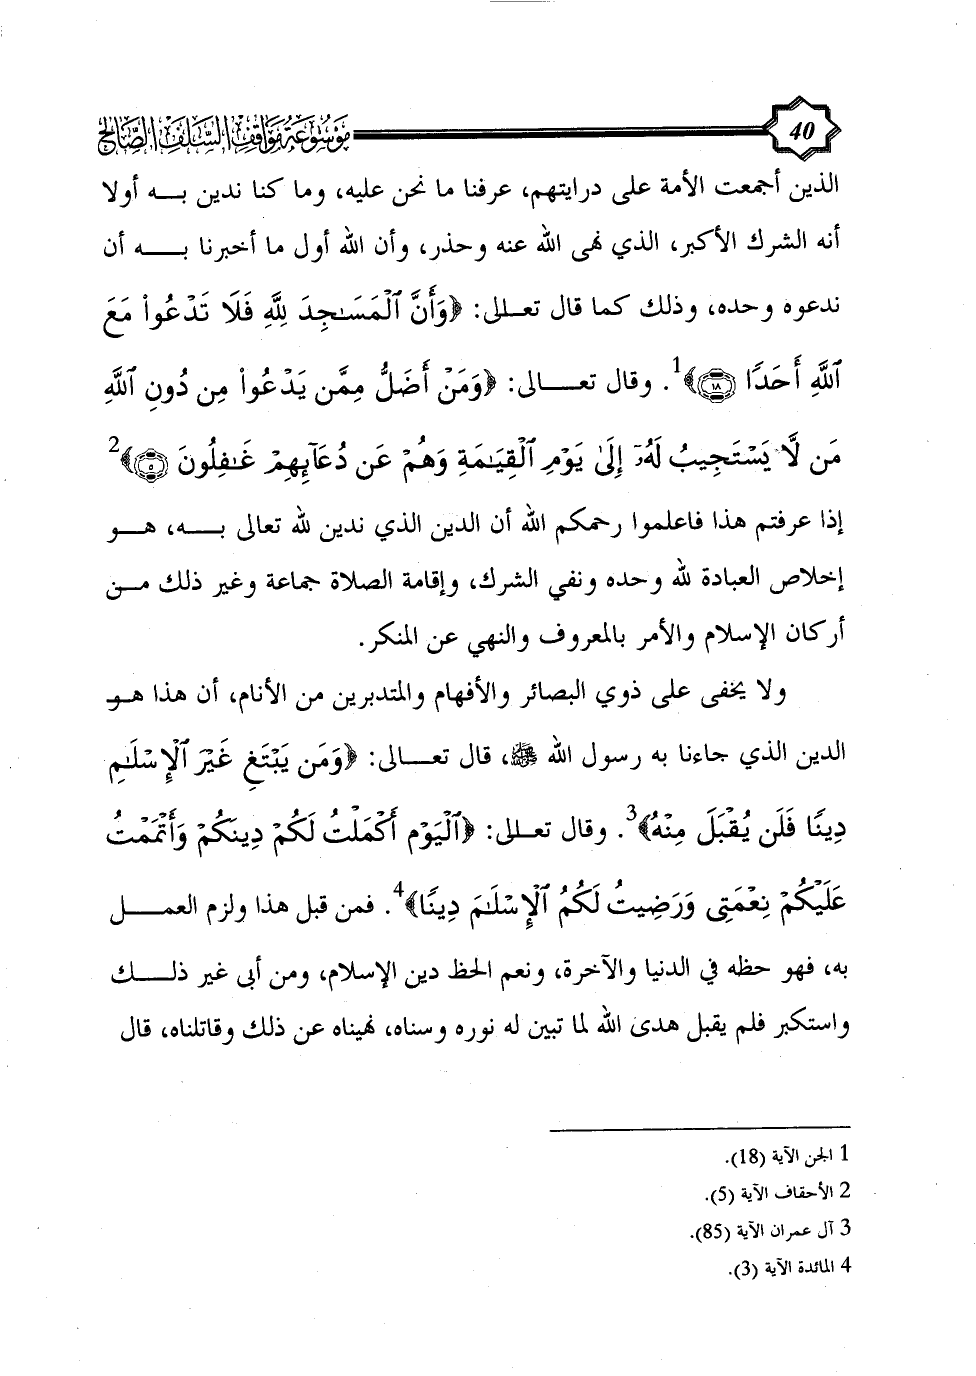 موسوعة مواقف السلف الصالح 40
الذين أجمعت الأمة على درايتهم، عرفنا ما نحن عليه، وما كنا ندين بـــه أولا
أنه الشرك الأكبر، الذي نهى الله عنه وحذر، وأن الله أول ما أخبرنا بـــه أن
ندعوه وحده، وذلك كما قال تعــالى: ﴿وَأَنَّ ٱلْمَسَـٰجِدَ لِلَّهِ فَلَا تَدْعُوا۟ مَعَ
ٱللَّهِ أَحَدًا ١٨﴾1. وقال تعـــالى: ﴿وَمَنْ أَضَلُّ مِمَّن يَدْعُوا۟ مِن دُونِ ٱللَّهِ
مَن لَّا يَسْتَجِيبُ لَهُۥٓ إِلَىٰ يَوْمِ ٱلْقِيَـٰمَةِ وَهُمْ عَن دُعَآئِهِمْ غَـٰفِلُونَ ٥﴾2
إذا عرفتم هذا فاعلموا رحمكم الله أن الدين الذي ندين لله تعالى بـــه، هـــو
إخلاص العبادة لله وحده ونفي الشرك، وإقامة الصلاة جماعة وغير ذلك مـــن
أركان الإسلام والأمر بالمعروف والنهي عن المنكر.
ولا يخفى على ذوي البصائر والأفهام والمتدبرين من الأنام، أن هذا هـــو
الدين الذي جاءنا به رسول الله ﷺ، قال تعـــالى: ﴿وَمَن يَبْتَغِ غَيْرَ ٱلْإِسْلَـٰمِ
دِينًا فَلَن يُقْبَلَ مِنْهُ﴾3. وقال تعــالى: ﴿ٱلْيَوْمَ أَكْمَلْتُ لَكُمْ دِينَكُمْ وَأَتْمَمْتُ
عَلَيْكُمْ نِعْمَتِى وَرَضِيتُ لَكُمُ ٱلْإِسْلَـٰمَ دِينًا﴾4. فمن قبل هذا ولزم العمـــل
به، فهو حظه في الدنيا والآخرة، ونعم الحظ دين الإسلام، ومن أبى غير ذلـــك
واستكبر فلم يقبل هدى الله لما تبين له نوره وسناه، نهيناه عن ذلك وقاتلناه، قال
1 الجن الآية (18).
2 الأحقاف الآية (5).
3 آل عمران الآية (85).
4 المائدة الآية (3).